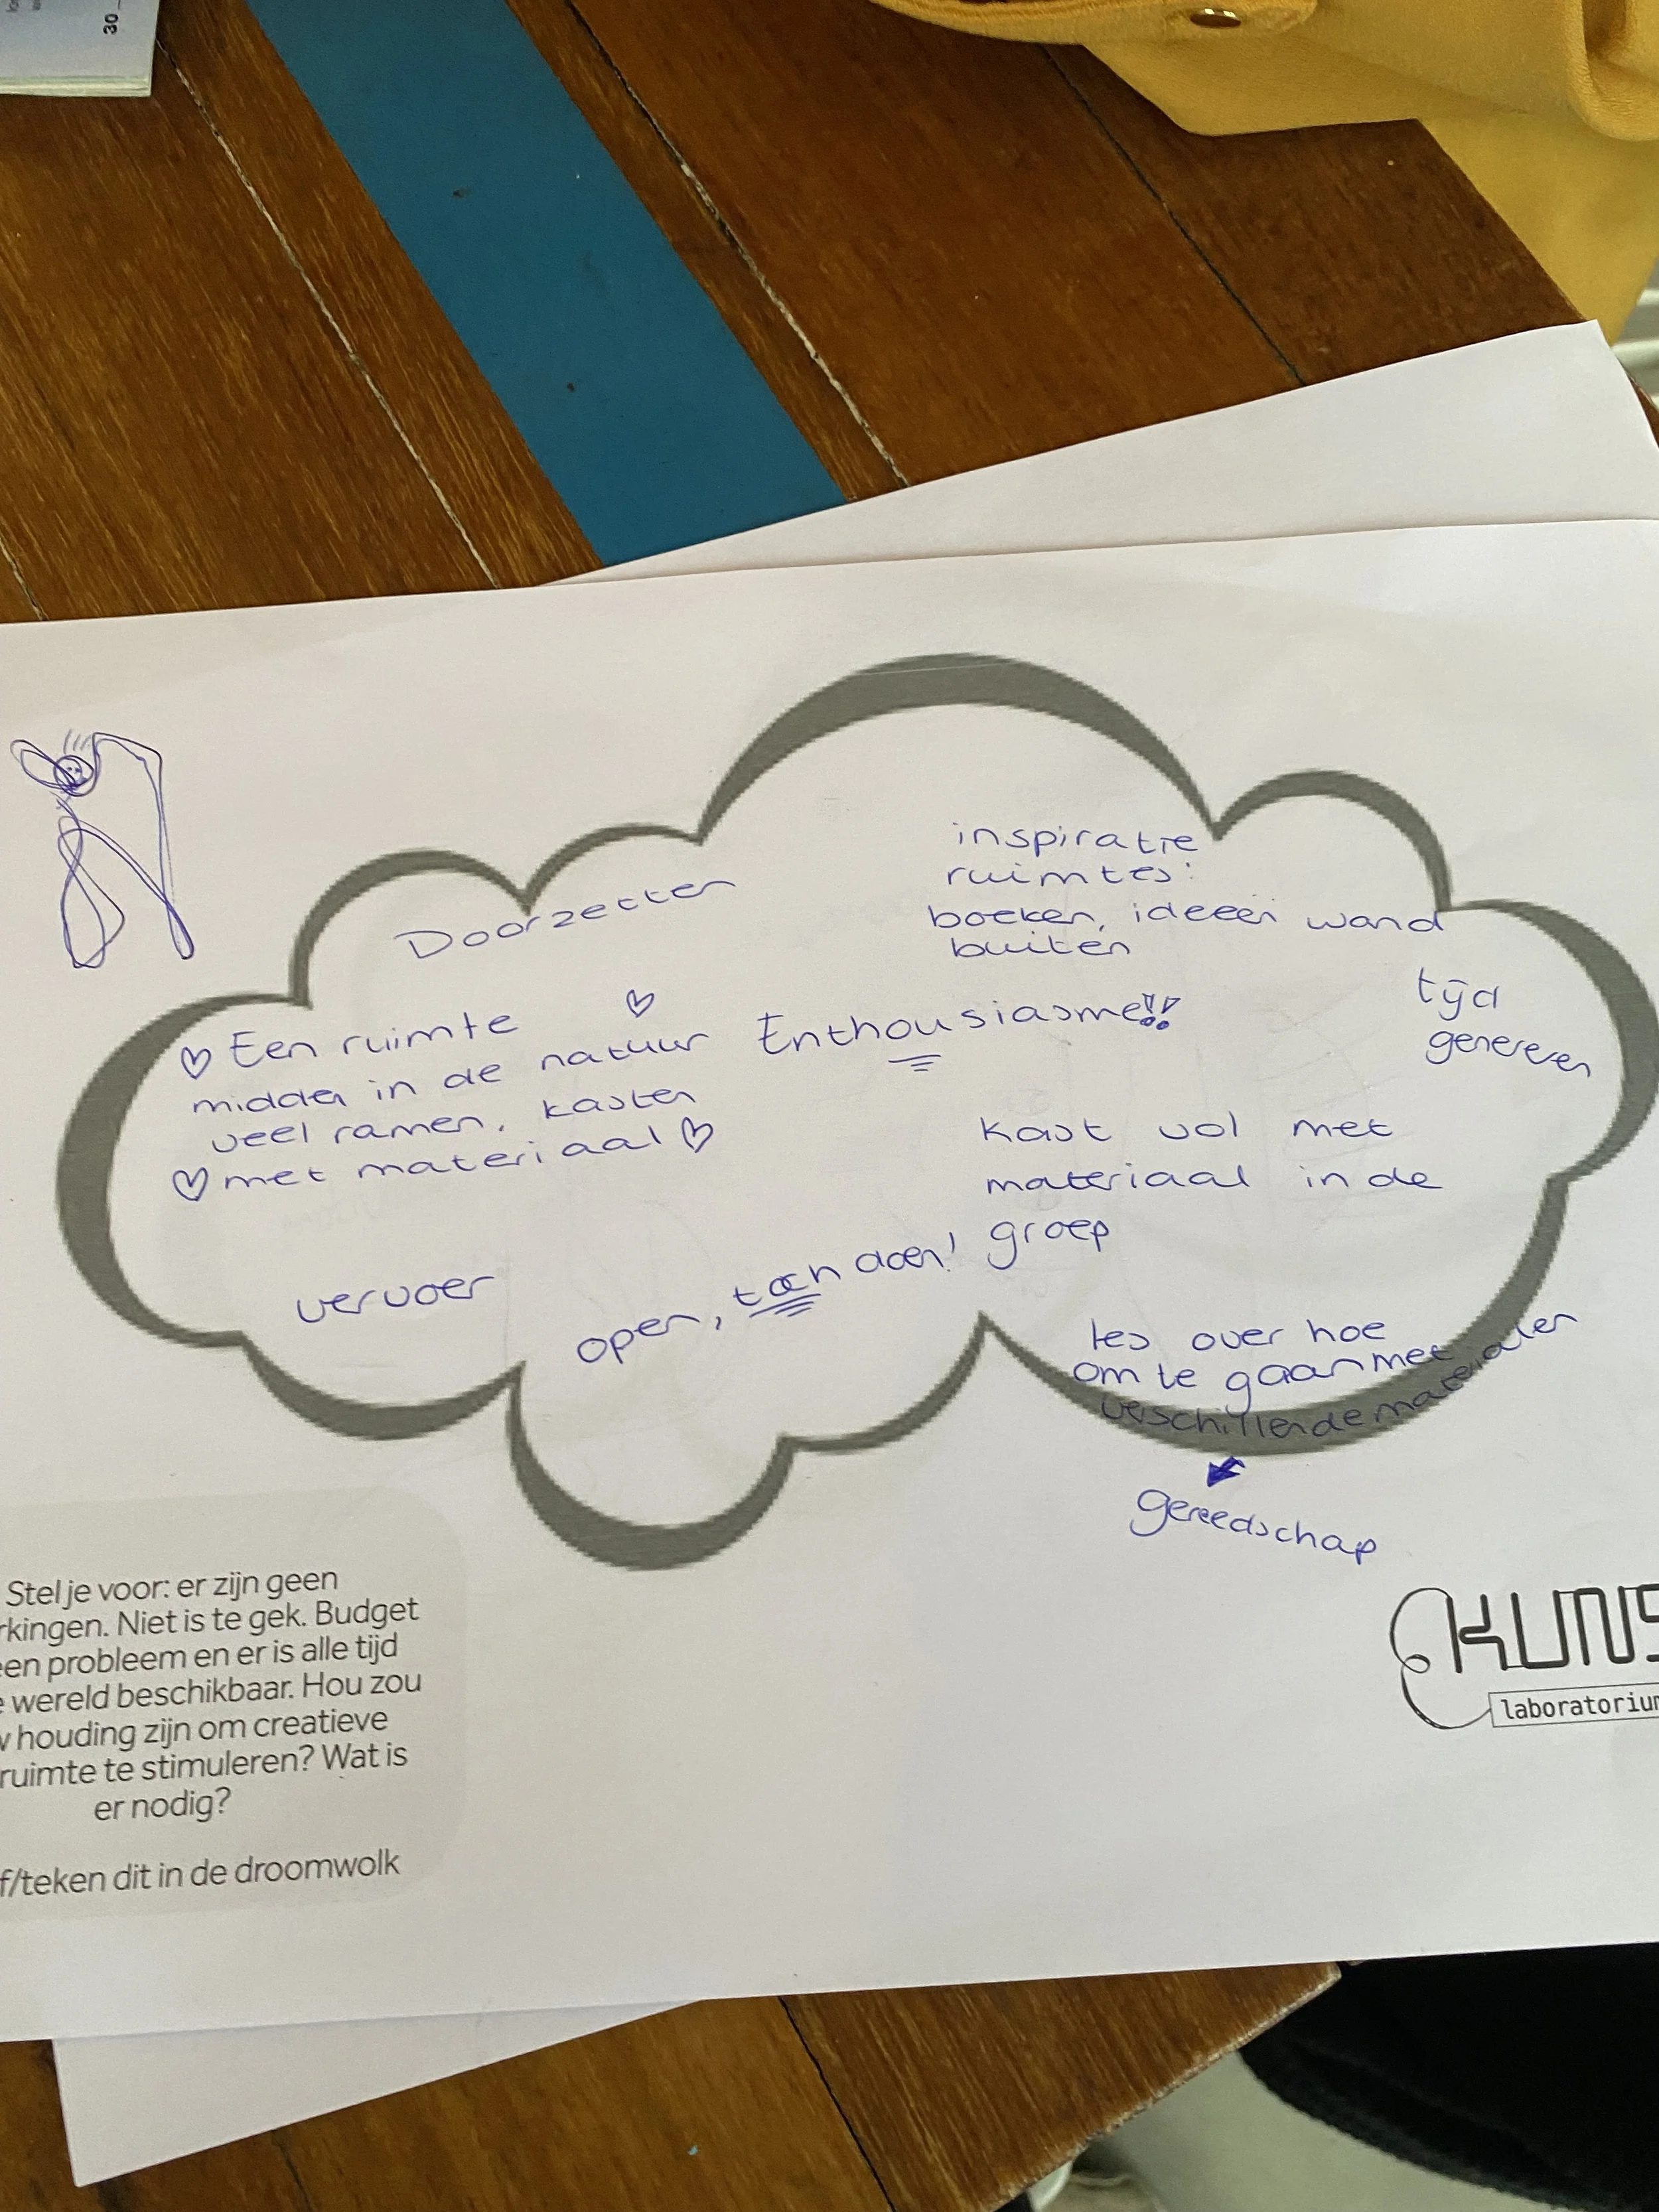 30
Doorzetten
inspiratie
ruimtes:
boeken, ideeën wand
buiten
Een ruimte
midden in de natuur
veel ramen, kasten
met materiaal
Enthousiasme!!
tijd
genereren
kast vol met
materiaal in de
groep
vervoer
open, toch doen!
les over hoe
om te gaan met
verschillende materialen
gereedschap
Stel je voor: er zijn geen
rkingen. Niet is te gek. Budget
een probleem en er is alle tijd
e wereld beschikbaar. Hou zou
w houding zijn om creatieve
ruimte te stimuleren? Wat is
er nodig?
f/teken dit in de droomwolk
KUNS
laboratorium